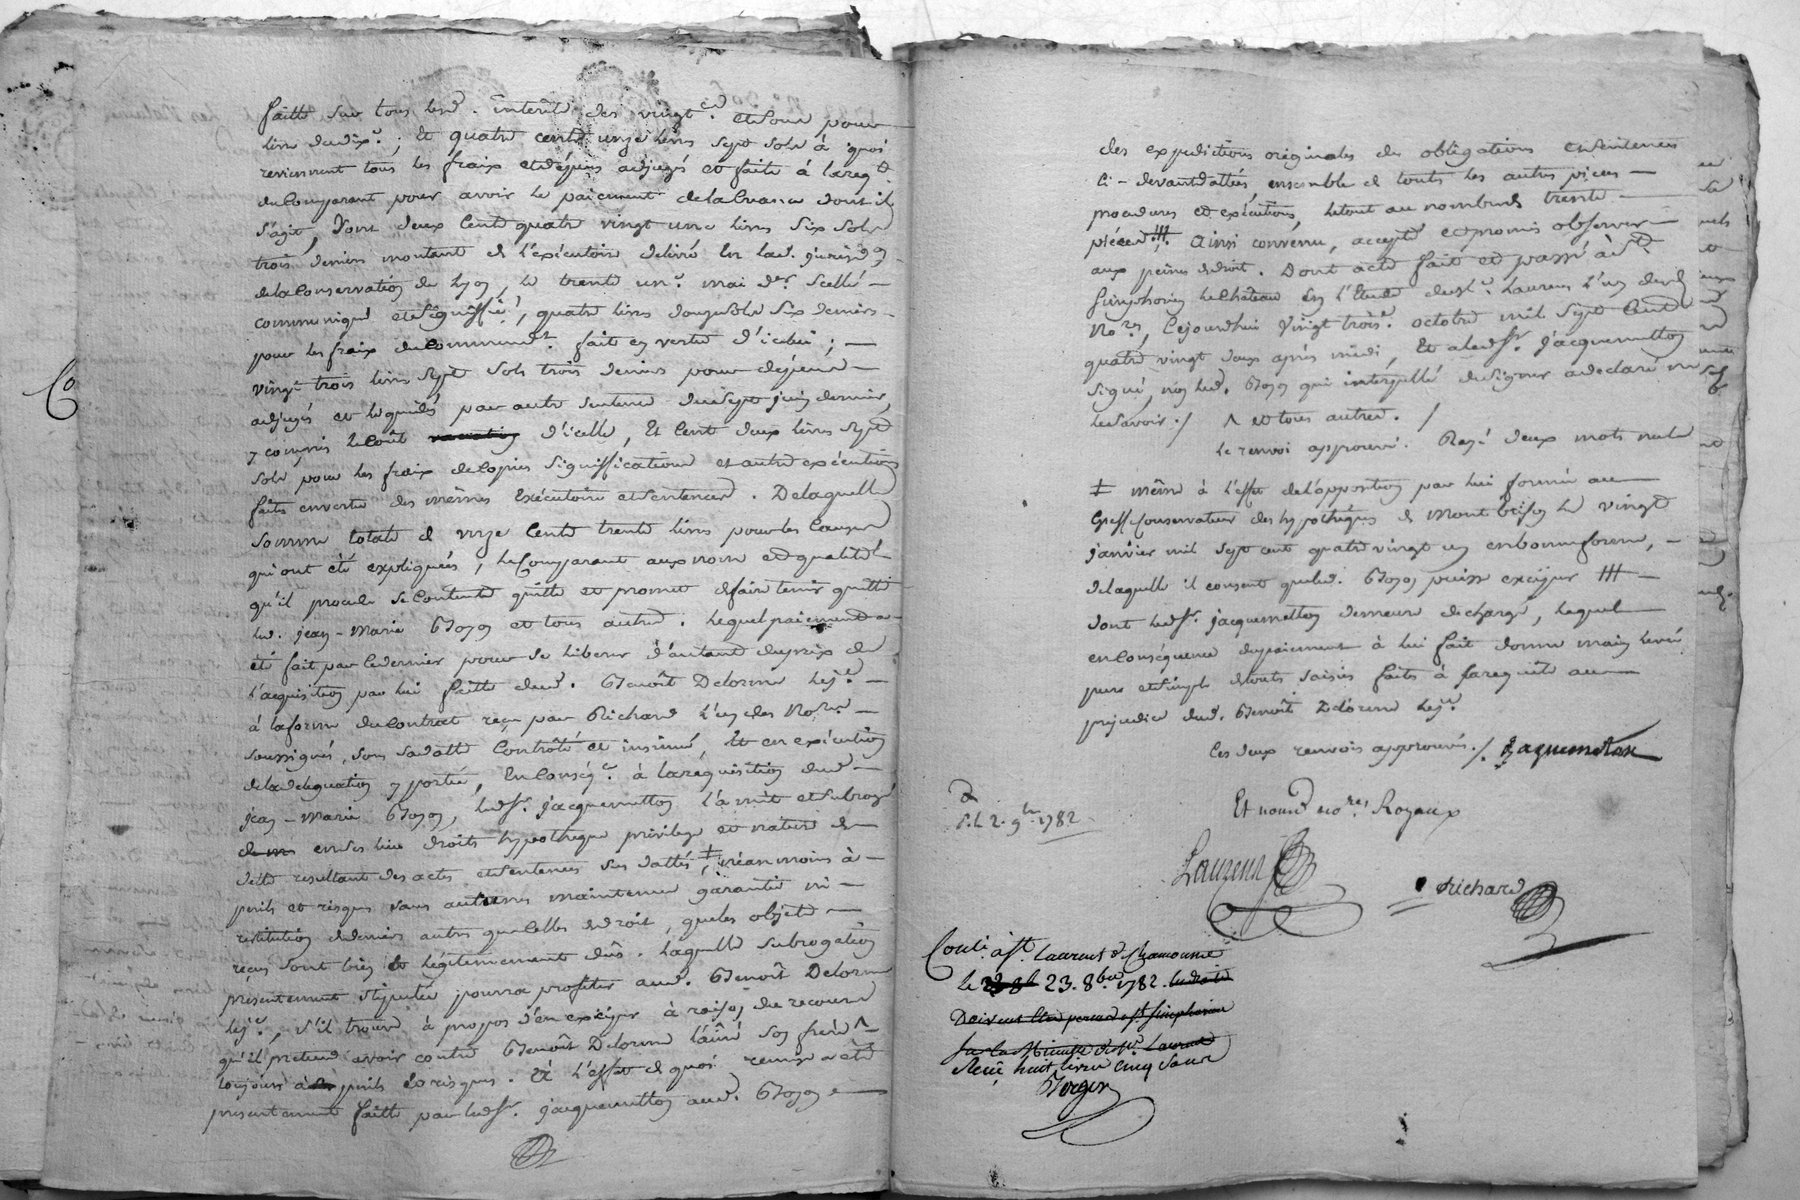 faitte sur tous lesd. interêts des vingt.es et sous pour
livre dudix.e; Et quatre cents unze livres sept sols à quoi
reviennent tous les fraix et dépens adjugés et faits à la req.te
du Comparant pour avoir le paiement de la créance dont il
s'agit, Dont deux Cents quatre vingt une livres six sols
trois deniers montant de l'exécutoire délivré en lad. jurisd.on
de la Conservation de Lyon, le trente un.e mai d.er scellé
communiqué et signiffié, quatre livres douze sols six deniers
pour les fraix du commandem.t fait en vertu d'icelui;
vingt trois livres sept sols trois deniers pour dépens
adjugés et liquidés par autre sentence du sept juin dernier,
y compris le coût d'icelle, Et Cent deux livres sept
sols pour les fraix de copies signiffications et autres exécutions
faites en vertu des mêmes Exécutoire et sentences. De laquelle
somme totale de onze Cents trente livres pour les causes
qui ont été expliquées, le Comparant aux nom et qualités
qu'il procède se Contente quitte et promet de faire tenir quitte
led. jean-Marie Goyon et tous autres. Lequel paiement a
été fait par ce dernier pour se liberer d'autant du prix de
l'acquisition par lui faitte dud. Benoît Delorme lej.e
à la forme du Contrat reçu par Richard l'un des No.res
soussignés, sous sa datte Controlé et insinué, Et en exécution
de la délégation y portée, En Conség.ce à la réquisition dud.
jean-Marie Goyon, led.sr. jacquemetton l'a mis et subrogé
en ses lieu droits hypotheque privilege et nature de
dette resultant des actes et sentences sus dattés, ‡ néanmoins à
perils et risques sans aucune maintenue garantie ni
restitution de deniers autres que celles de droit, que les objets
reçus sont bien et légitimement dûs. Laquelle subrogation
présentement stipulée pourra profiter aud. Benoît Delorme
lej.e, s'il trouve à propos d'en exciper à raison du recours
qu'il prétend avoir contre Benoît Delorme l'aîné son frère ^
toujours à perils et risques. Et à l'effet de quoi remise a été
présentement faitte par led.sr. jacquemetton aud. Goyon
des expeditions originales des obligations et sentences
ci-devant dattés, ensemble de touts les autres pieces
procedures et exécutions, le tout au nombre de trente
pièces. Ainsi convenu, accepté et promis observer
aux peines de droit. Dont acte fait et passé à S.t
Simphorien le Château En l'Etude de M.e Laurens l'un desd.
No.res, Cejourd'hui vingt trois.e octobre mil sept Cents
quatre vingt deux après midi, Et a led.sr. jacquemetton
signé, non led. Goyon qui interpellé de signer a déclaré ne
le savoir ./ ^ et tous autres. /
le renvoi approuvé. Rayé deux mots nuls
‡ même à l'effet de l'opposition par lui formée au
Greffe Conservateur des hypothéques de Montbrison le vingt
janvier mil sept cent quatre vingt un en bonne forme,
de laquelle il consent que led. Goyon puisse exciper ///
dont led.sr. jacquemetton demeure déchargé, lequel
en Conséquence du paiement à lui fait donne main levée
pure et simple de touts saisies faites à sa requête au
préjudice dud. Benoît Delorme lej.e
les deux renvois approuvés ./. Jaquemeton
Et nous no.res Royaux
s. l. 2. 9.bre 1782
Laurens
Richard
Conl. à St. Laurent de Chamousset
le 23. 8.bre 1782.
Reçu huit livres cinq sous